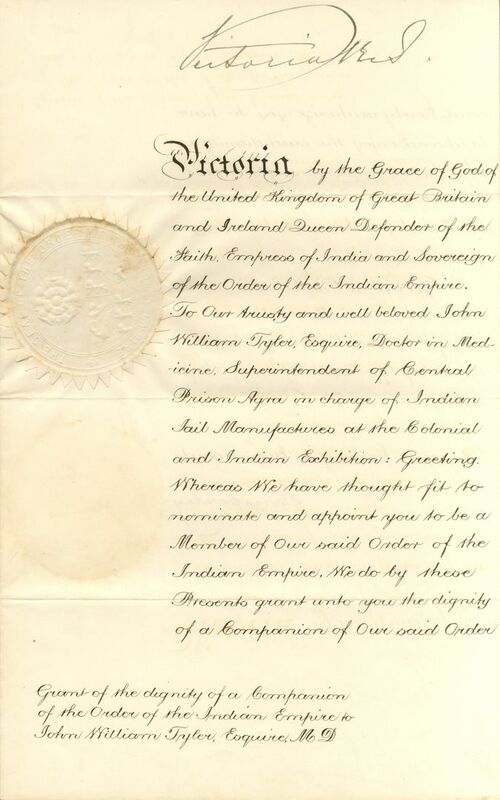 Victoria R et I.
Victoria by the Grace of God of
the United Kingdom of Great Britain
and Ireland Queen Defender of the
Faith, Empress of India and Sovereign
of the Order of the Indian Empire.
To Our trusty and well beloved John
William Tyler, Esquire, Doctor in Med-
icine, Superintendent of Central
Prison Agra in charge of Indian
Jail Manufactures at the Colonial
and Indian Exhibition: Greeting.
Whereas We have thought fit to
nominate and appoint you to be a
Member of Our said Order of the
Indian Empire, We do by these
Presents grant unto you the dignity
of a Companion of Our said Order
Grant of the dignity of a Companion
of the Order of the Indian Empire to
John William Tyler, Esquire, M.D